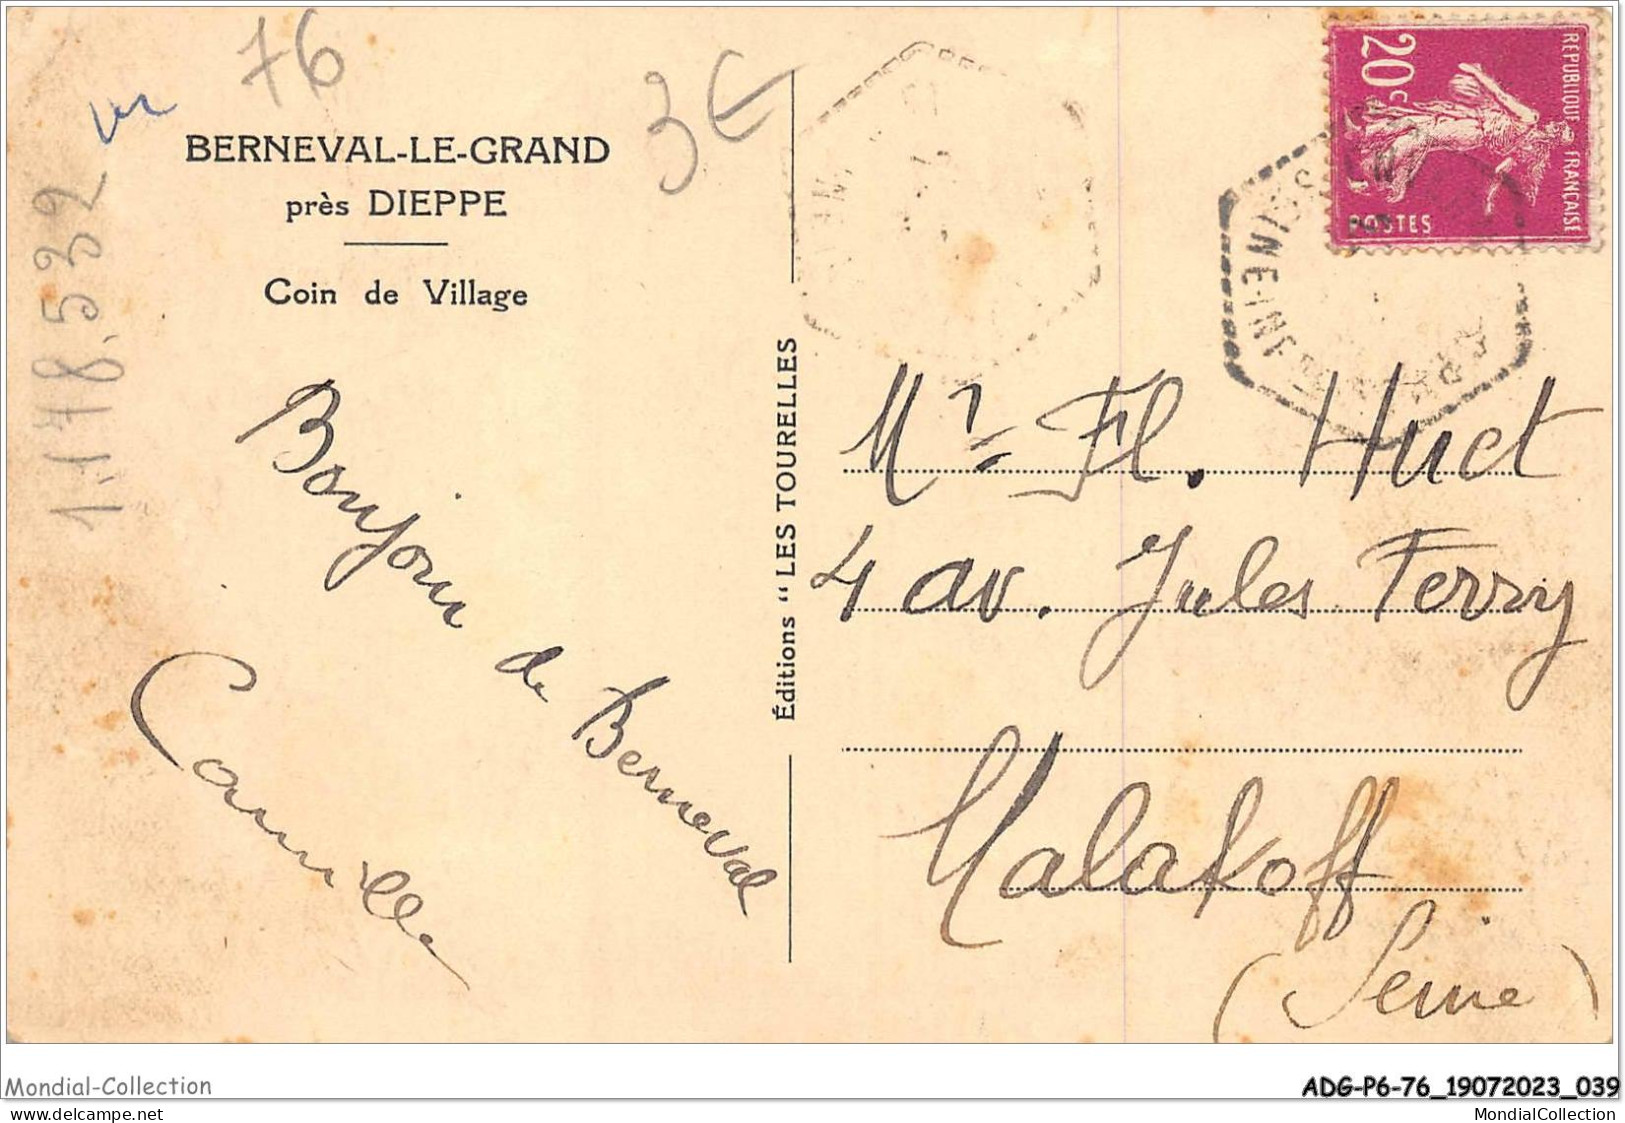 76
3€
vu
BERNEVAL-LE-GRAND
près DIEPPE
Coin de Village
1.178.532
Bonjour
de Berneval
Camille
Éditions “ LES TOURELLES
20c
REPUBLIQUE FRANÇAISE
POSTES
SEINE-INFRE
Mr Fl. Huet
4 av. Jules Ferry
Malakoff
(Seine)
Mondial-Collection
ADG-P6-76_19072023_039
delcampe.net
MondialCollection